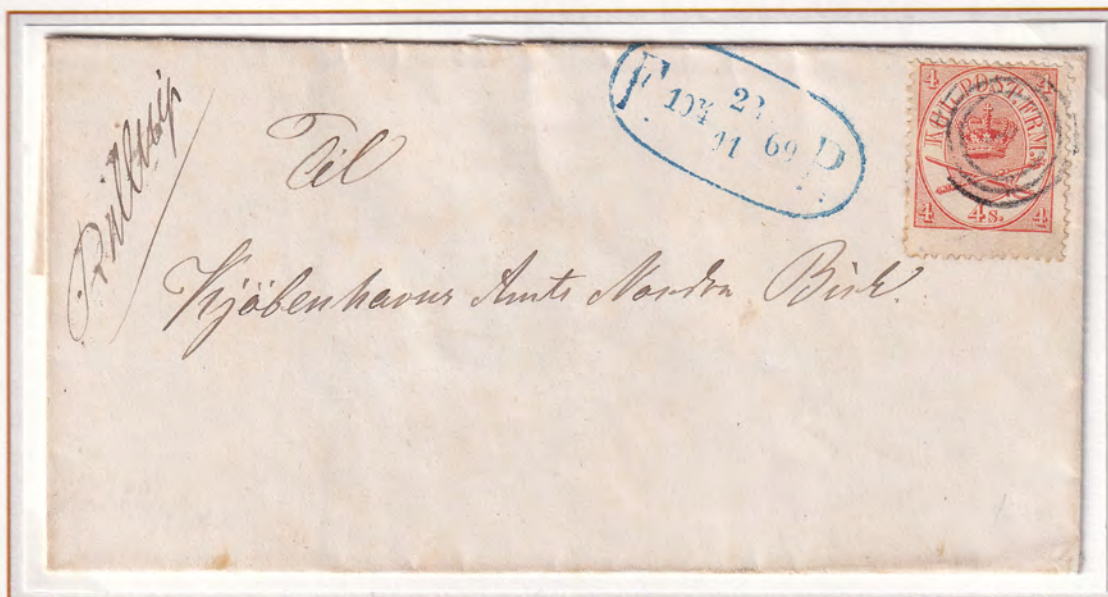 Til
Kjöbenhavns Amts Nordre Birk.
F 22 D
104
11 69
4 4
KGL. POST. FRM.
4 4s. 4